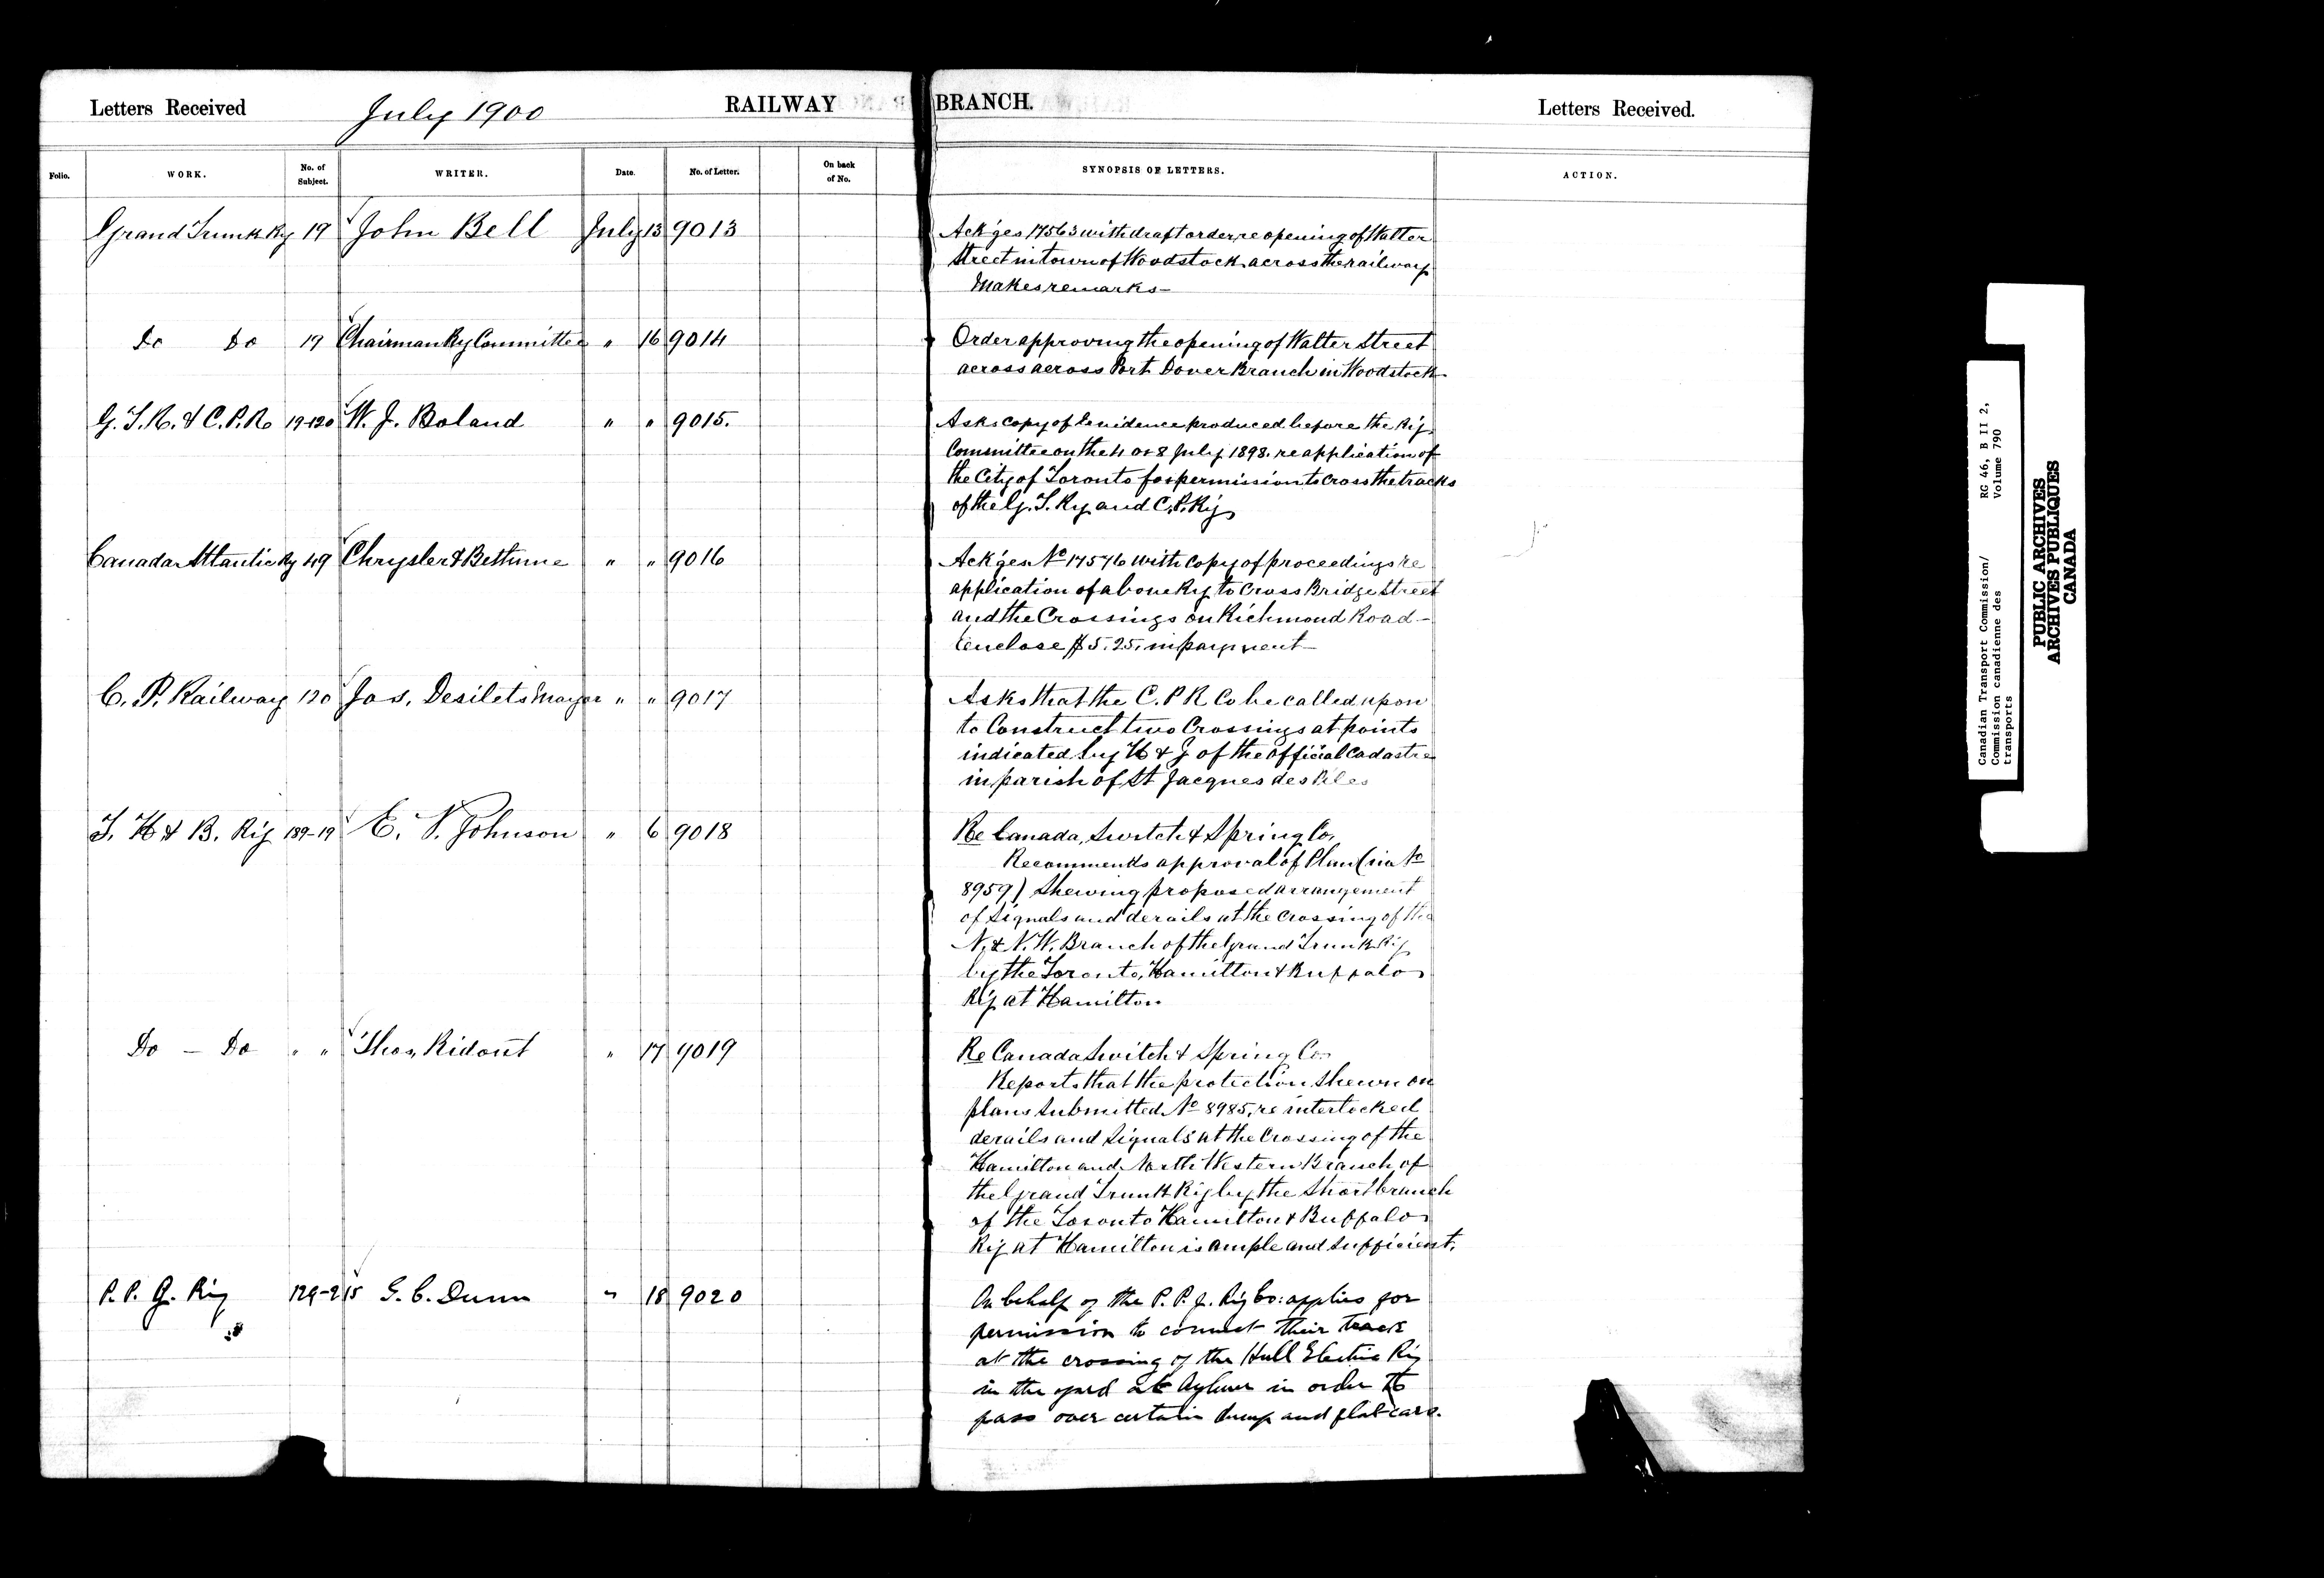 Letters Received July 1900 RAILWAY BRANCH. Letters Received.
Folio. WORK. No. of Subject. WRITER. Date. No. of Letter. On back of No. SYNOPSIS OF LETTERS. ACTION.
Grand Trunk Ry 19 John Bell July 13 9013 Ack'ges 17563 with draft order, re opening of Walter
Street in town of Woodstock across the railway
Makes remarks—
Do Do 19 Chairman Ry Committee " 16 9014 Order approving the opening of Walter Street
across across Port Dover Branch in Woodstock
G. T. R. & C. P. R 19-120 W. J. Boland " " 9015. Asks copy of Evidence produced before the Ry
Committee on the 4 or 8 July 1898. re application of
the City of Toronto for permission to cross the tracks
of the G. T. Ry and C. P. Ry
Canada Atlantic Ry 49 Chrysler & Bethune " " 9016 Ack'ges No 17576 with copy of proceedings re
application of above Ry to Cross Bridge Street
and the Crossings on Richmond Road—
Enclose $5.25. in payment—
C. P. Railway 120 Jos. Desilets Mayor " " 9017 Asks that the C. P R Co be called upon
to Construct two Crossings at points
indicated by H & J of the official Cadastre
in parish of St Jacques des Piles
T. H & B. Ry 189-19 E. V. Johnson " 6 9018 Re Canada, Switch & Spring Co,
Recommends approval of Plan (via No
8959) Shewing proposed arrangement
of Signals and derails at the Crossing of the
N. & N. W. Branch of the Grand Trunk Ry
by the Toronto, Hamilton & Buffalo
Ry at Hamilton
Do — Do " " Thos, Ridout " 17 9019 Re Canada Switch & Spring Co.
Reports that the protection Shewn on
plans Submitted No 8985, re interlocked
derails and Signals at the Crossing of the
Hamilton and North Western Branch of
the Grand Trunk Ry by the Short branch
of the Toronto Hamilton & Buffalo
Ry at Hamilton is ample and Sufficient.
P. P. J. Ry 129-215 G. C. Dunn " 18 9020 On behalf of the P. P. J. Ry Co: applies for
permission to connect their track
at the crossing of the Hull Electric Ry
in the yard at Aylmer in order to
pass over certain dump and flat cars.
Canadian Transport Commission/ RG 46, B II 2,
Commission canadienne des Volume 790
transports
PUBLIC ARCHIVES
ARCHIVES PUBLIQUES
CANADA